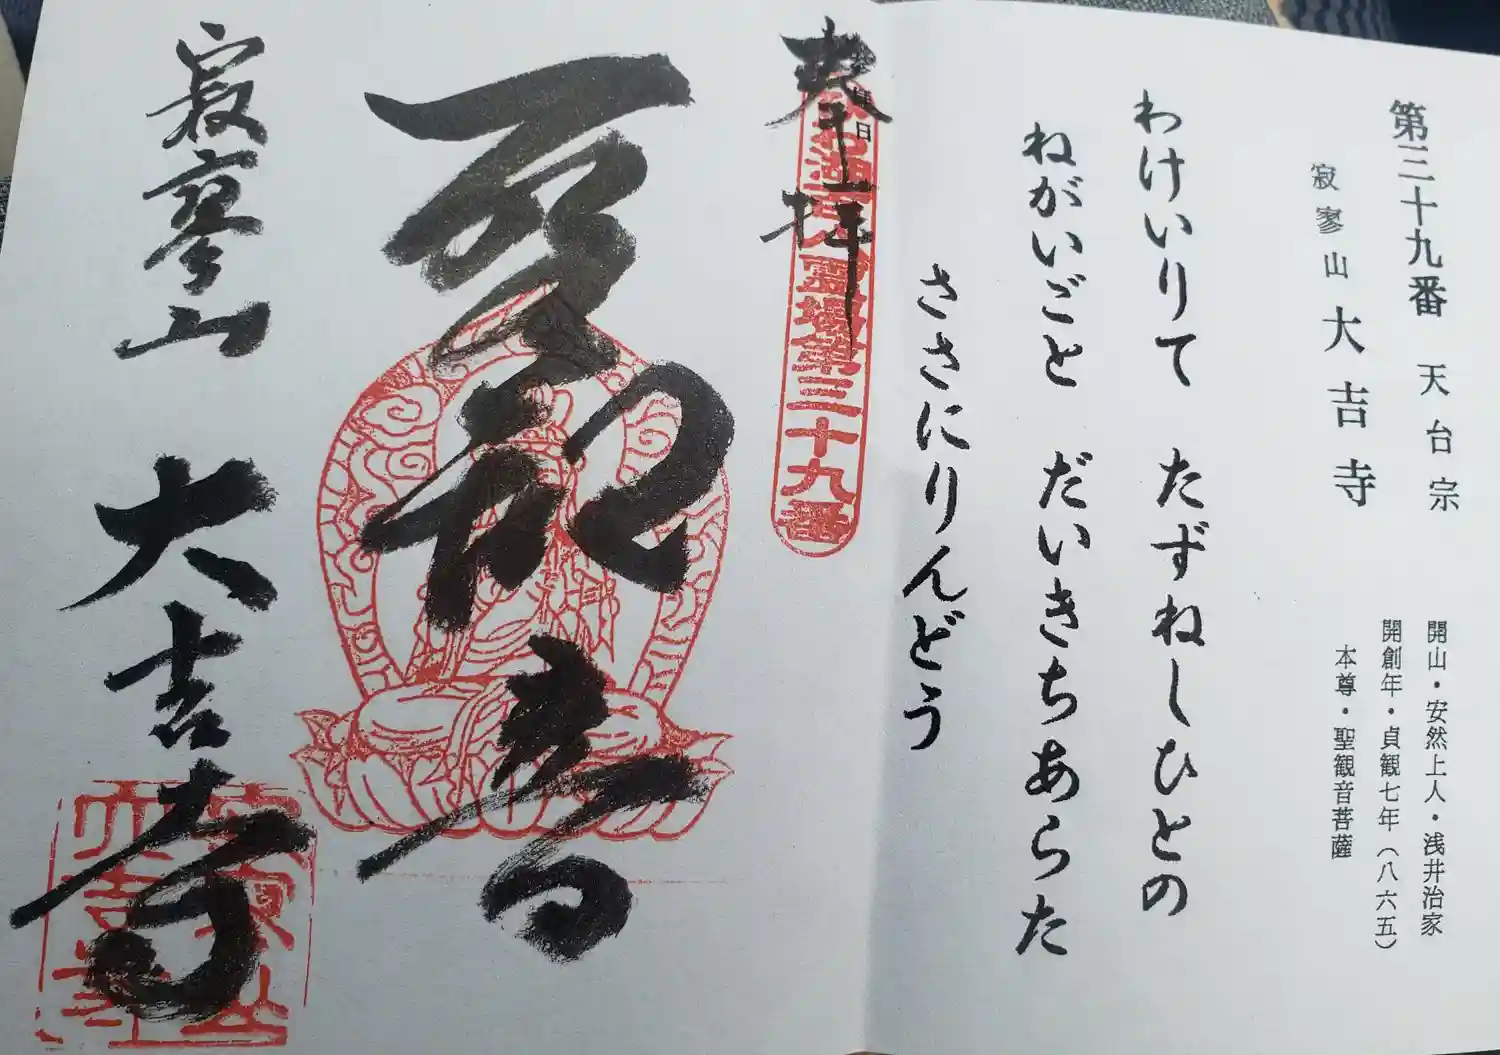 第三十九番 天台宗
寂寥山 大吉寺
開山・安然上人・浅井治家
開創年・貞観七年（八六五）
本尊・聖観音菩薩
わけいりて たずねしひとの
ねがいごと だいきちあらた
ささにりんどう
奉拝
わ湖百八霊場第三十九番
聖観音
寂寥山 大吉寺
寂寥山
大吉寺